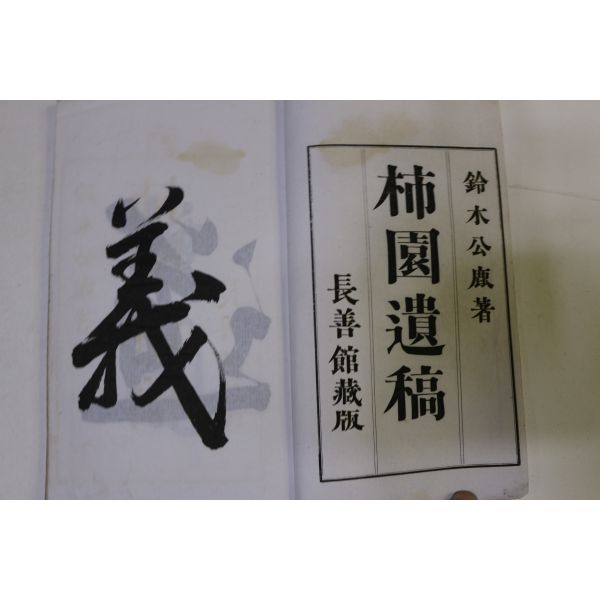 鈴木公鹿著
柿園遺稿
長善館藏版
義